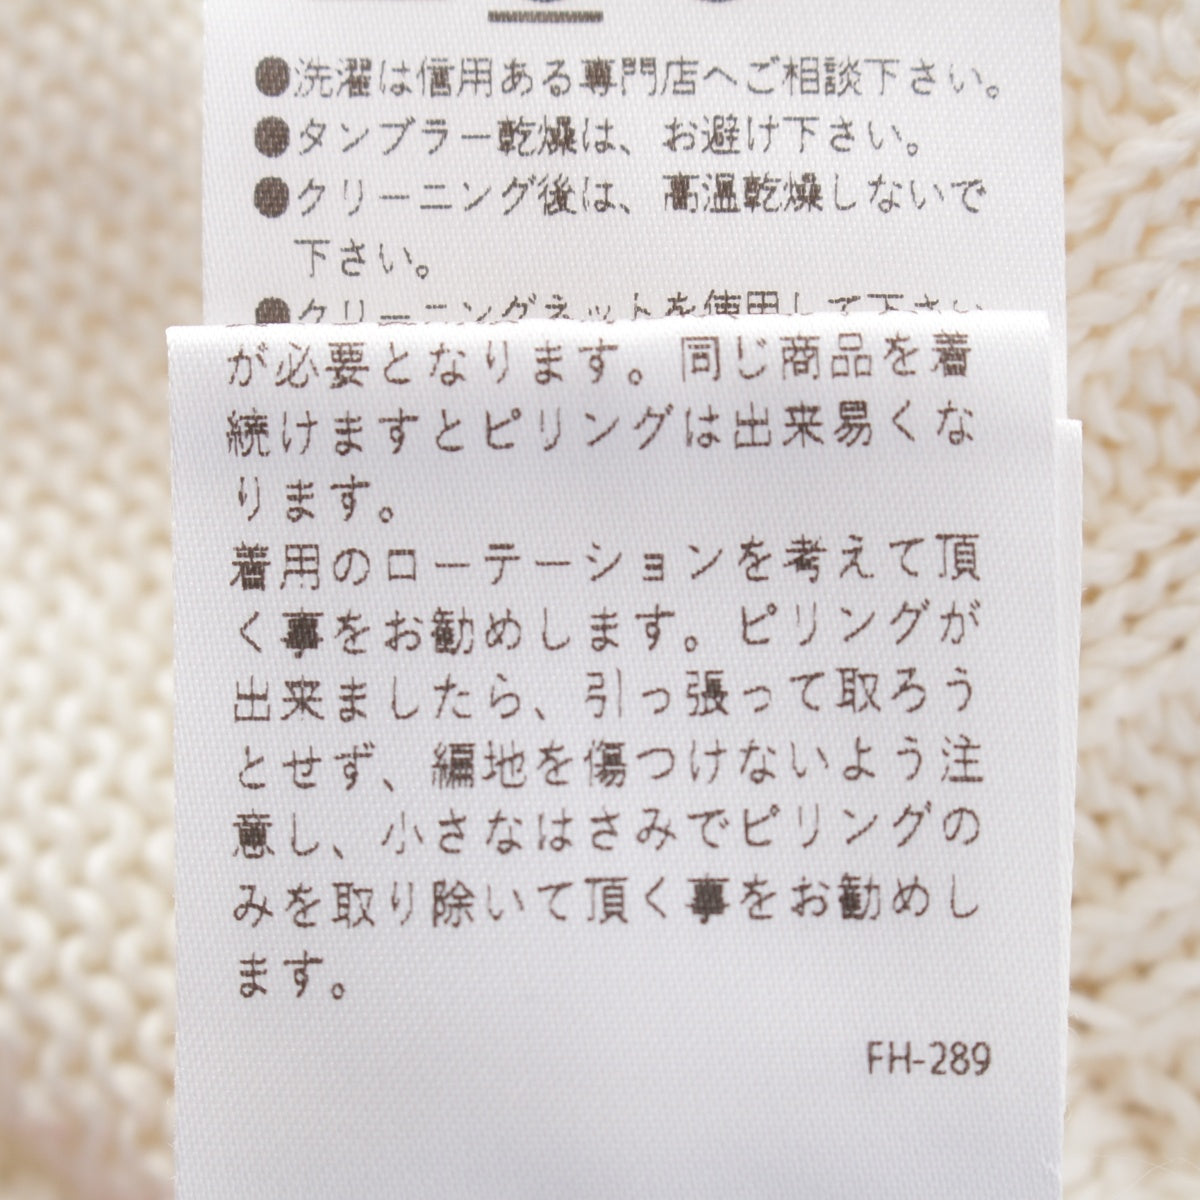 ●洗濯は信用ある専門店へご相談下さい。
●タンブラー乾燥は、お避け下さい。
●クリーニング後は、高温乾燥しないで
下さい。
●クリーニングネットを使用して下さい
が必要となります。同じ商品を着
続けますとピリングは出来易くな
ります。
着用のローテーションを考えて頂
く事をお勧めします。ピリングが
出来ましたら、引っ張って取ろう
とせず、編地を傷つけないよう注
意し、小さなはさみでピリングの
みを取り除いて頂く事をお勧めし
ます。
FH-289